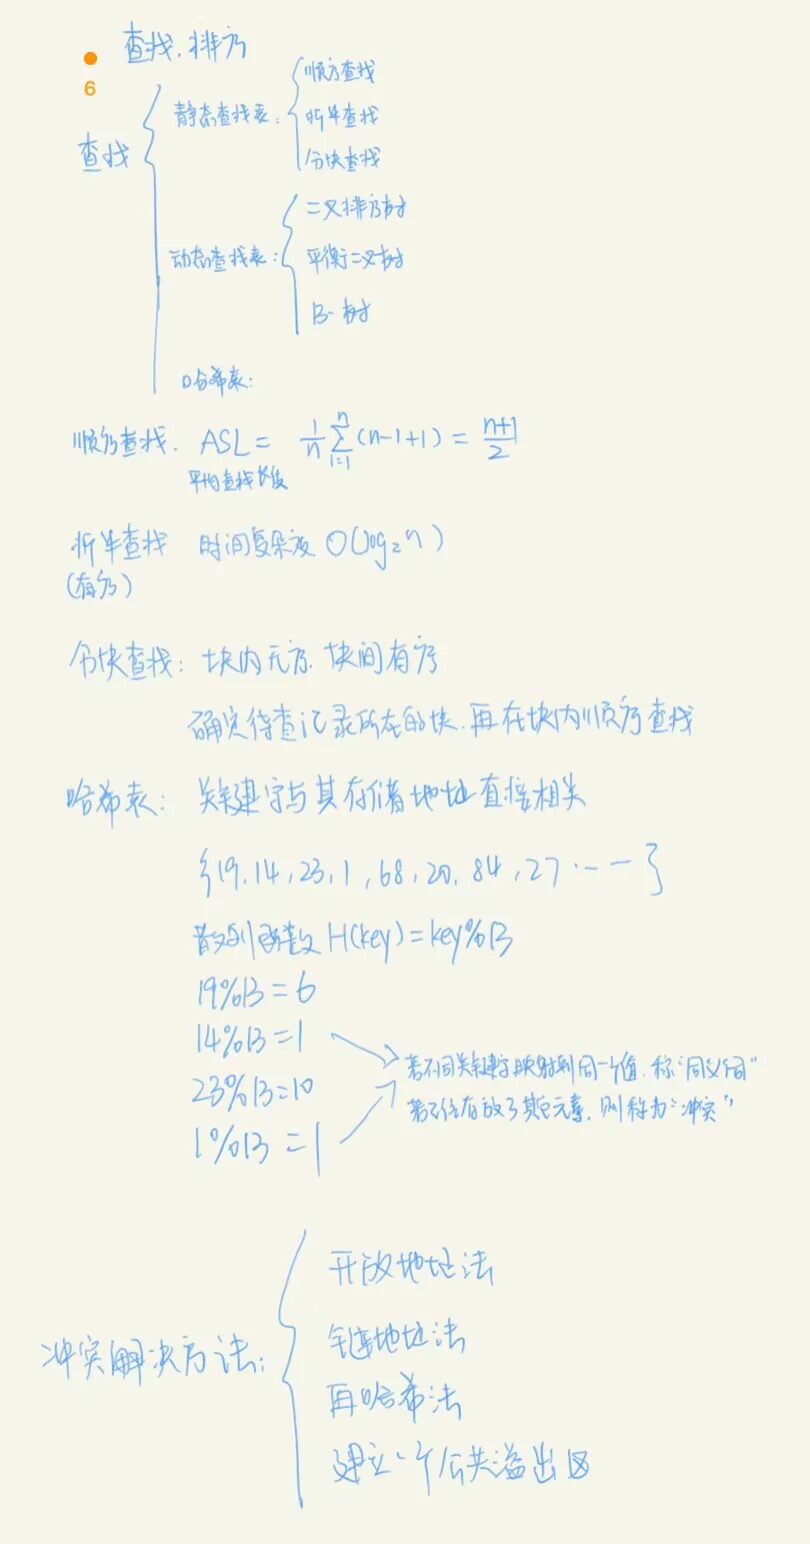 查找、排序
6
查找
静态查找表:
顺序查找
折半查找
分块查找
动态查找表:
二叉排序树
平衡二叉树
B-树
哈希表:
顺序查找. ASL = 1/n ∑_{i=1}^{n} (n-1+1) = (n+1)/2
平均查找长度
折半查找 时间复杂度 O(log₂n)
(有序)
分块查找: 块内无序、块间有序
确定待查记录所在的块、再在块内顺序查找
哈希表: 关键字与其存储地址直接相关
{19, 14, 23, 1, 68, 20, 84, 27 ···}
散列函数 H(key) = key%13
19%13 = 6
14%13 = 1
23%13 = 10
1%13 = 1
若不同关键字映射到同一个值、称"同义词"
若已经存放了其它元素、则称为"冲突"
冲突解决方法:
开放地址法
链地址法
再哈希法
建立一个公共溢出区